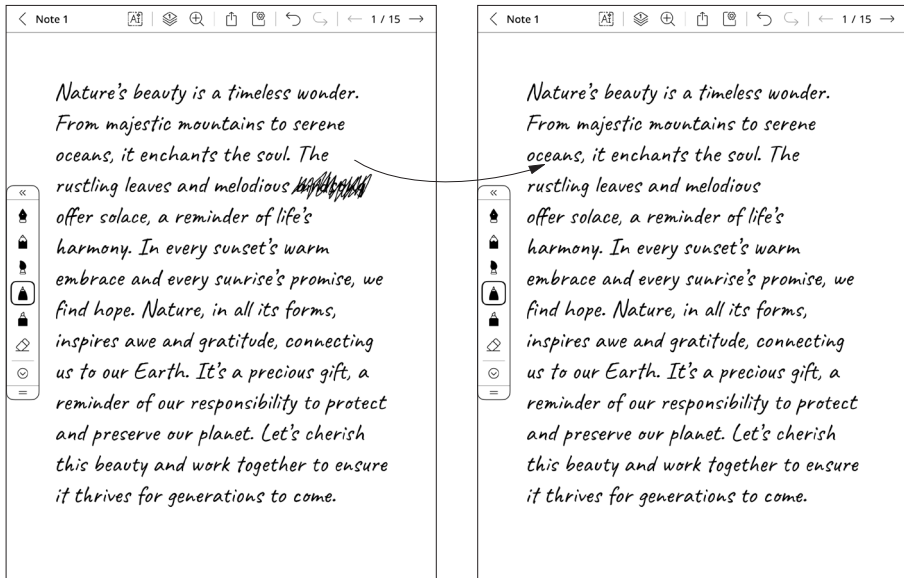 Note 1
1 / 15
Nature's beauty is a timeless wonder.
From majestic mountains to serene
oceans, it enchants the soul. The
rustling leaves and melodious
offer solace, a reminder of life's
harmony. In every sunset's warm
embrace and every sunrise's promise, we
find hope. Nature, in all its forms,
inspires awe and gratitude, connecting
us to our Earth. It's a precious gift, a
reminder of our responsibility to protect
and preserve our planet. Let's cherish
this beauty and work together to ensure
it thrives for generations to come.
Note 1
1 / 15
Nature's beauty is a timeless wonder.
From majestic mountains to serene
oceans, it enchants the soul. The
rustling leaves and melodious
offer solace, a reminder of life's
harmony. In every sunset's warm
embrace and every sunrise's promise, we
find hope. Nature, in all its forms,
inspires awe and gratitude, connecting
us to our Earth. It's a precious gift, a
reminder of our responsibility to protect
and preserve our planet. Let's cherish
this beauty and work together to ensure
it thrives for generations to come.